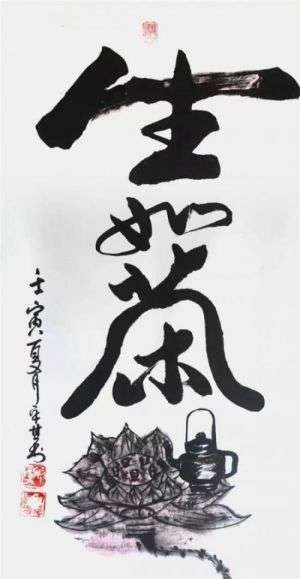 人生如茶
壬寅夏月